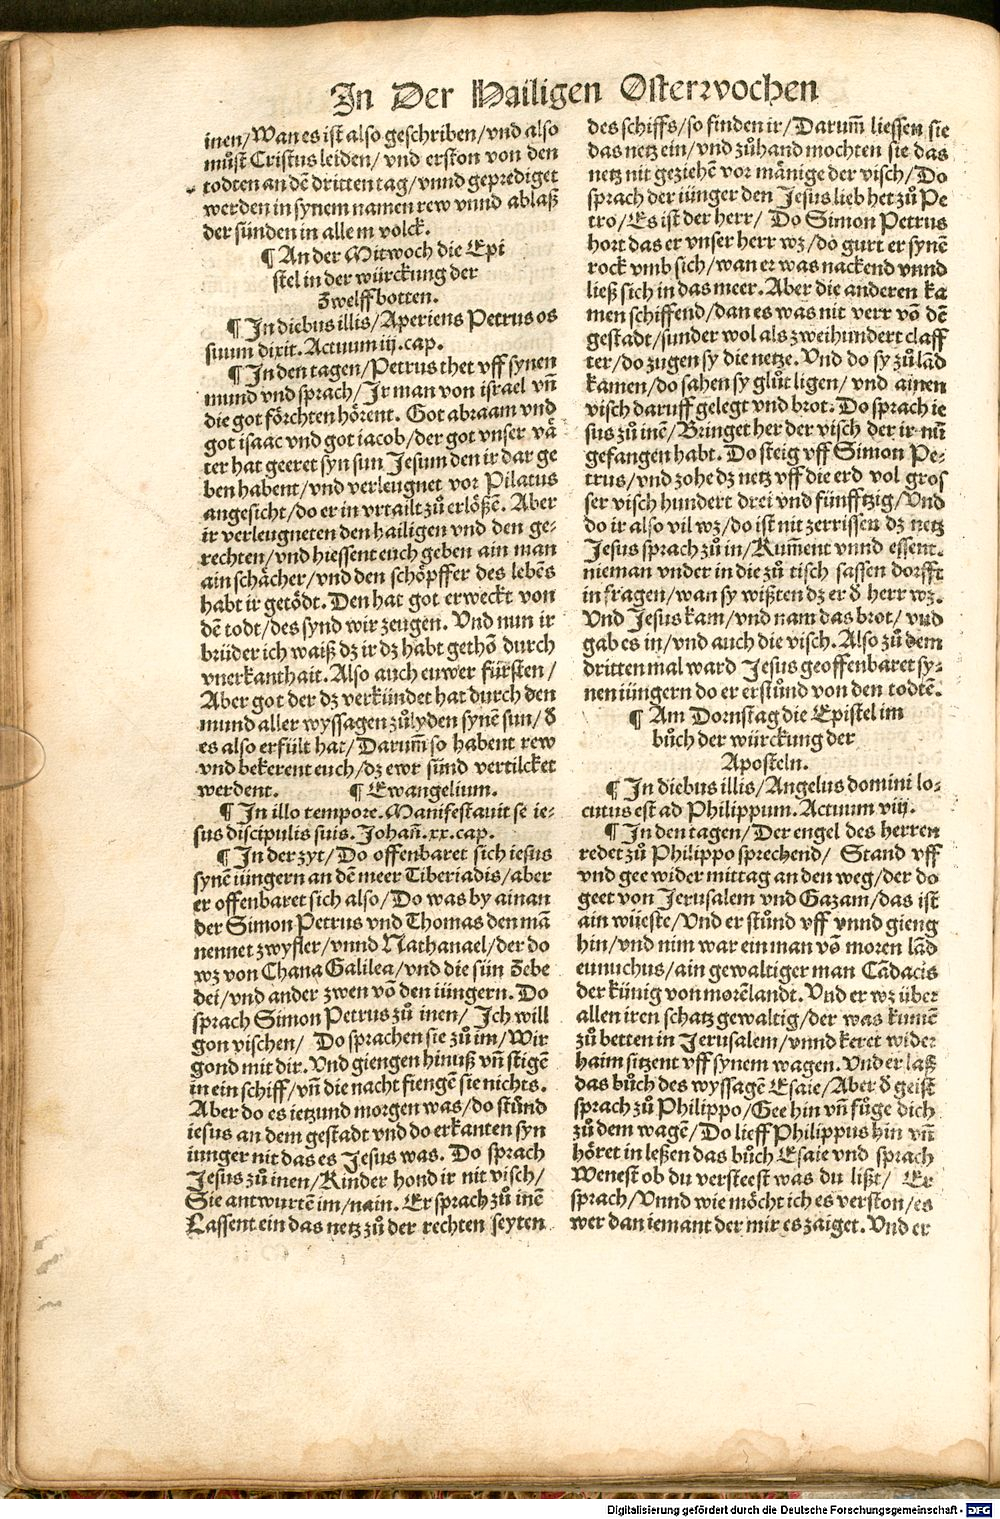 In Der Hailigen Osterwochen
inen/Wan es ist also geschriben/vnd also
můst Cristus leiden/ vnd erston von den
todten an dē dritten tag/vnnd geprediget
werden in synem namen rew vnnd ablaß
der sünden in allem volck.
¶ An der Mitwoch die Epi
stel in der würckung der
Zwelffbotten.
¶ In diebus illis/Aperiens Petrus os
suum dixit. Actuum iij. cap.
¶ In den tagen/Petrus thet vff synen
mund vnd sprach/Ir man von israel vn̄
die got förchten hörent. Got abraam vnd
got isaac vnd got iacob/der got vnser vä
ter hat geeret syn sun Jesum den ir dar ge
ben habent/vnd verleugnet vor Pilatus
angesicht/do er in vrtailt zů erlößē. Aber
ir verleugneten den hailigen vnd den ge-
rechten/vnd hiessent euch geben ain man
ain schächer/vnd den schöpffer des lebēs
habt ir getödt. Den hat got erweckt von
dē todt/des synd wir zeugen. Vnd nun ir
brüder ich waiß dz ir dz habt gethō durch
vnerkanthait. Also auch euwer fürsten/
Aber got der dz verkündet hat durch den
mund aller wyssagen zůlyden synē sun/ð
es also erfült hat/Darum̄ so habent rew
vnd bekerent euch/dz ewr sünd vertilcket
werdent. ¶ Ewangelium.
¶ In illo tempore. Manifestauit se ie-
sus discipulis suis. Johan̄. xx. cap.
¶ In der zyt/Do offenbaret sich iesus
synē iüngern an dē meer Tiberiadis/aber
er offenbaret sich also/Do was by ainan
der Simon Petrus vnd Thomas den mā
nennet zwyfler/vnnd Nathanael/der do
wz von Chana Galilea/vnd die sün Zebe
dei/vnd ander zwen vō den iüngern. Do
sprach Simon Petrus zů inen/ Ich will
gon vischen/ Do sprachen sie zů im/Wir
gond mit dir. Vnd giengen hinuß vn̄ stigē
in ein schiff/vn̄ die nacht fiengē sie nichts.
Aber do es ietzund morgen was/do stůnd
iesus an dem gestadt vnd do erkanten syn
iunger nit das es Jesus was. Do sprach
Jesus zů inen/Kinder hond ir nit visch/
Sie antwurtē im/nain. Er sprach zů inē
Lassent ein das netz zů der rechten seyten
des schiffs/so finden ir/Darum̄ liessen sie
das netz ein/vnd zůhand mochten sie das
netz nit geziehē vor mänige der visch/Do
sprach der iünger den Jesus lieb het zů Pe
tro/Es ist der herr/ Do Simon Petrus
hort das er vnser herr wz/do gurt er synē
rock vmb sich/wan er was nackend vnnd
ließ sich in das meer. Aber die anderen ka
men schiffend/dan es was nit verr vō dē
gestadt/sunder wol als zweihundert claff
ter/do zugen sy die netze. Vnd do sy zů lād
kamen/do sahen sy glůt ligen/ vnd ainen
visch daruff gelegt vnd brot. Do sprach ie
sus zů inē/Bringet her der visch der ir nū
gefangen habt. Do steig vff Simon Pe-
trus/vnd zohe dz netz vff die erd vol gros
ser visch hundert drei vnd fünfftzig/Vnd
do ir also vil wz/do ist nit zerrissen dz netz
Jesus sprach zů in/Kum̄ent vnnd essent.
nieman vnder in die zů tisch sassen dorfft
in fragen/wan sy wißten dz er ð herr wz.
Vnd Jesus kam/vnd nam das brot/ vnd
gab es in/vnd auch die visch. Also zů dem
dritten mal ward Jesus geoffenbaret sy-
nen iüngern do er erstůnd von den todtē.
¶ Am Dornstag die Epistel im
bůch der würckung der
Aposteln.
¶ In diebus illis/Angelus domini lo-
cutus est ad Philippum. Actuum viij.
¶ In den tagen/Der engel des herren
redet zů Philippo sprechend/ Stand vff
vnd gee wider mittag an den weg/der do
geet von Jerusalem vnd Gazam/das ist
ain wüeste/Vnd er stůnd vff vnnd gieng
hin/vnd nim war ein man vō moren lād
eunuchus/ain gewaltiger man Cādacis
der künig von morēlandt. Vnd er wz über
allen iren schatz gewaltig/der was kumē
zů betten in Jerusalem/vnnd keret wider
haim sitzent vff synem wagen. Vnd er laß
das bůch des wyssagē Esaie/Aber ð geist
sprach zů Philippo/Gee hin vn̄ füge dich
zů dem wagē/Do lieff Philippus hin vn̄
höret in leßen das bůch Esaie vnd sprach
Wenest ob du versteest was du lißt/ Er
sprach/Vnnd wie möcht ich es verston/es
wer dan iemant der mir es zaiget. Vnd er
Digitalisierung gefördert durch die Deutsche Forschungsgemeinschaft - DFG